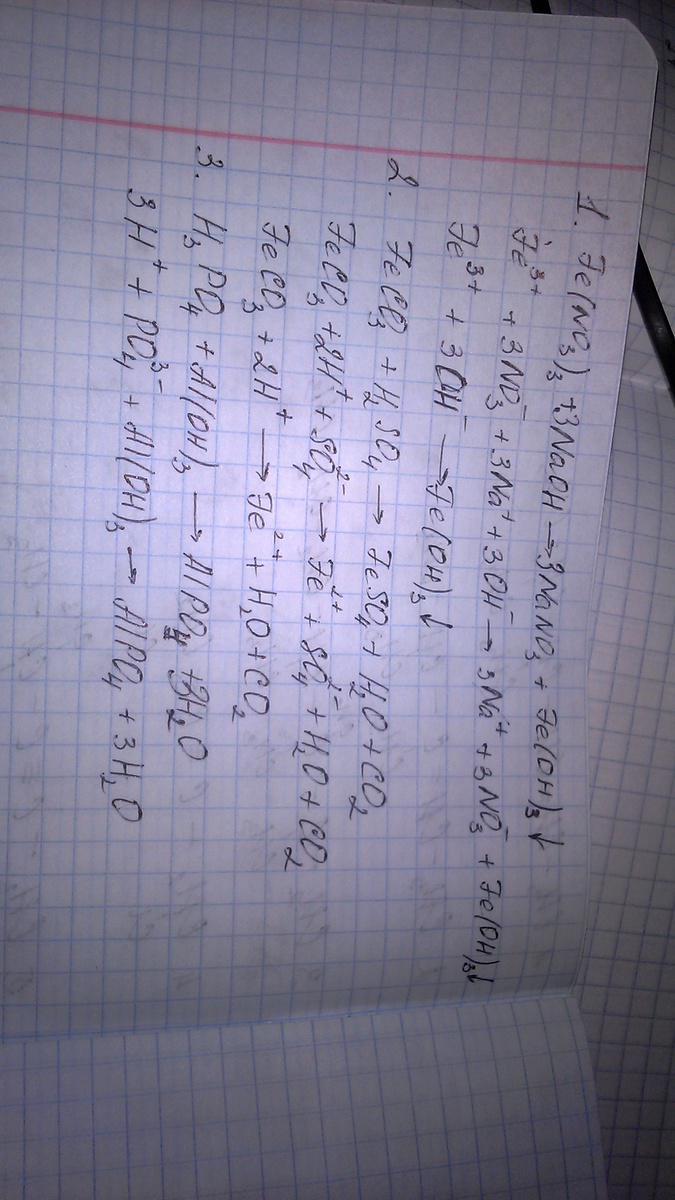 1. Fe(NO₃)₃ + 3NaOH → 3NaNO₃ + Fe(OH)₃↓
Fe³⁺ + 3NO₃⁻ + 3Na⁺ + 3OH⁻ → 3Na⁺ + 3NO₃⁻ + Fe(OH)₃↓
Fe³⁺ + 3OH⁻ → Fe(OH)₃↓
2. FeCO₃ + H₂SO₄ → FeSO₄ + H₂O + CO₂
FeCO₃ + 2H⁺ + SO₄²⁻ → Fe²⁺ + SO₄²⁻ + H₂O + CO₂
FeCO₃ + 2H⁺ → Fe²⁺ + H₂O + CO₂
3. H₃PO₄ + Al(OH)₃ → AlPO₄ + 3H₂O
3H⁺ + PO₄³⁻ + Al(OH)₃ → AlPO₄ + 3H₂O